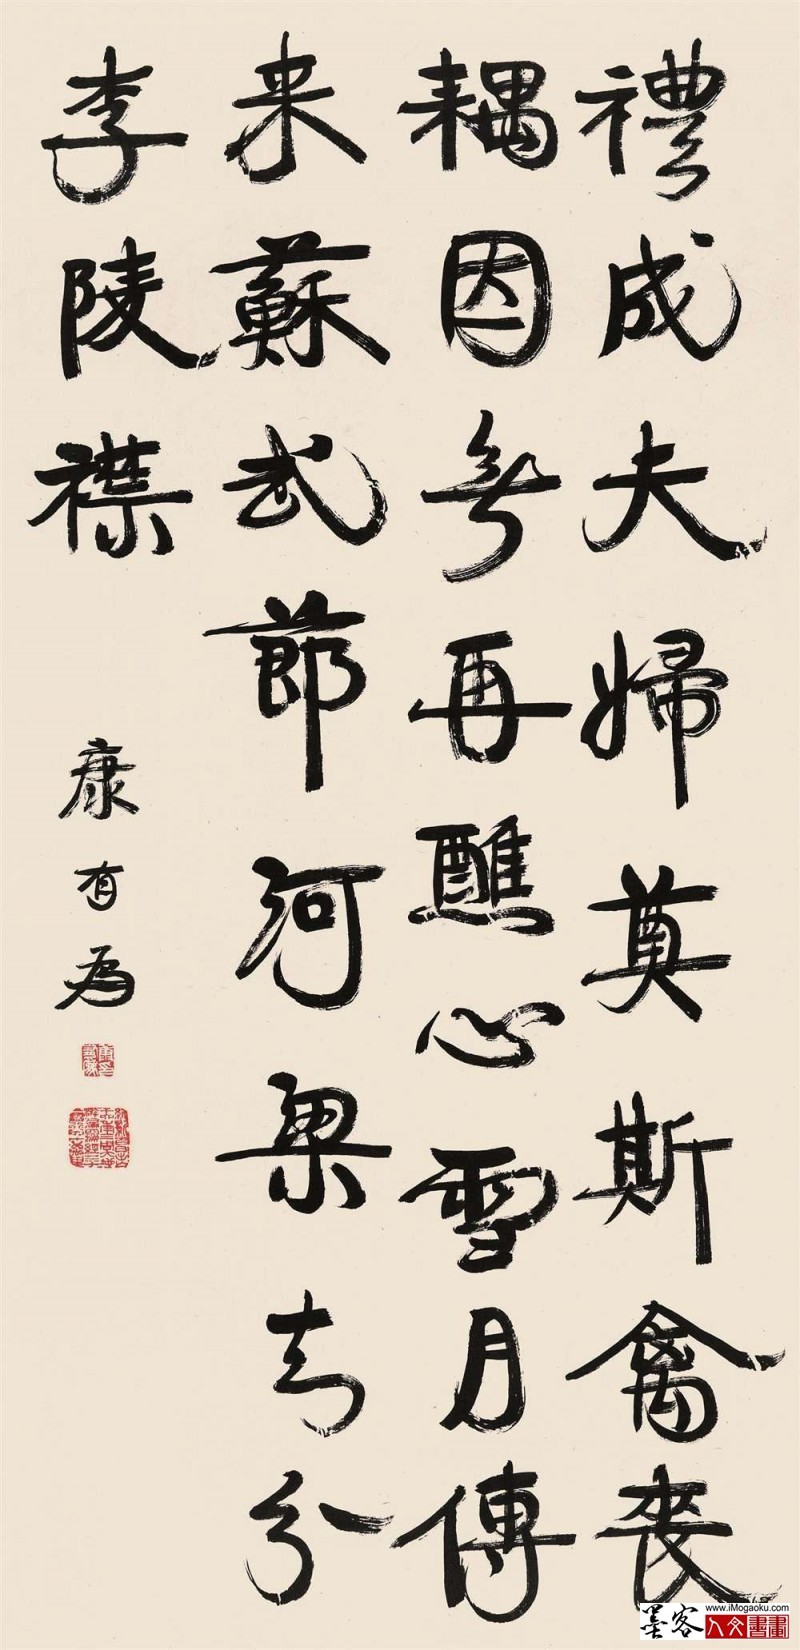 禮成夫婦奠斯禽喪
耦因無再醮心雪月傳
来蘇武節河梁去分
李陵襟
康有為
www.iMogaoku.com
墨客
人文書畫